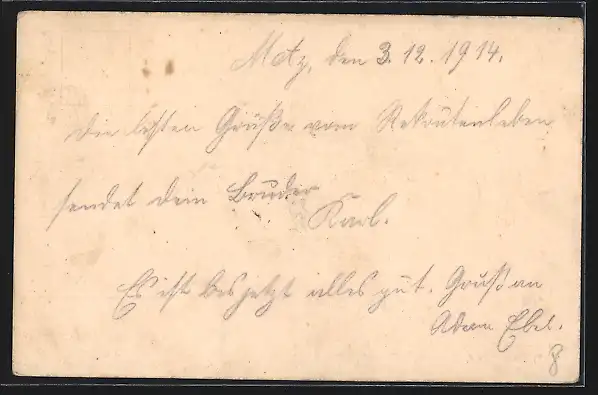 Metz, den 3. 12. 1914.
Die besten Grüße vom Rekrutenleben
sendet dein Bruder
Karl.
Es ist bis jetzt alles gut. Gruß an
Adam Ebel.
8